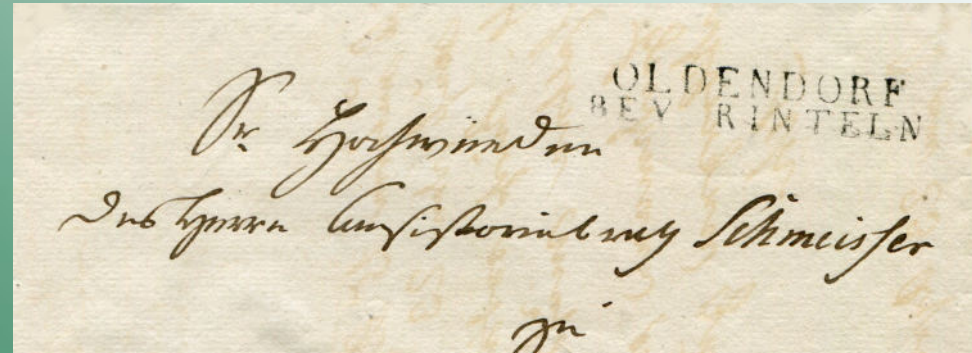 OLDENDORF
BEY RINTELN
Sr. Hochwürden
des Herrn Consistorialrath Schmeisser
zu